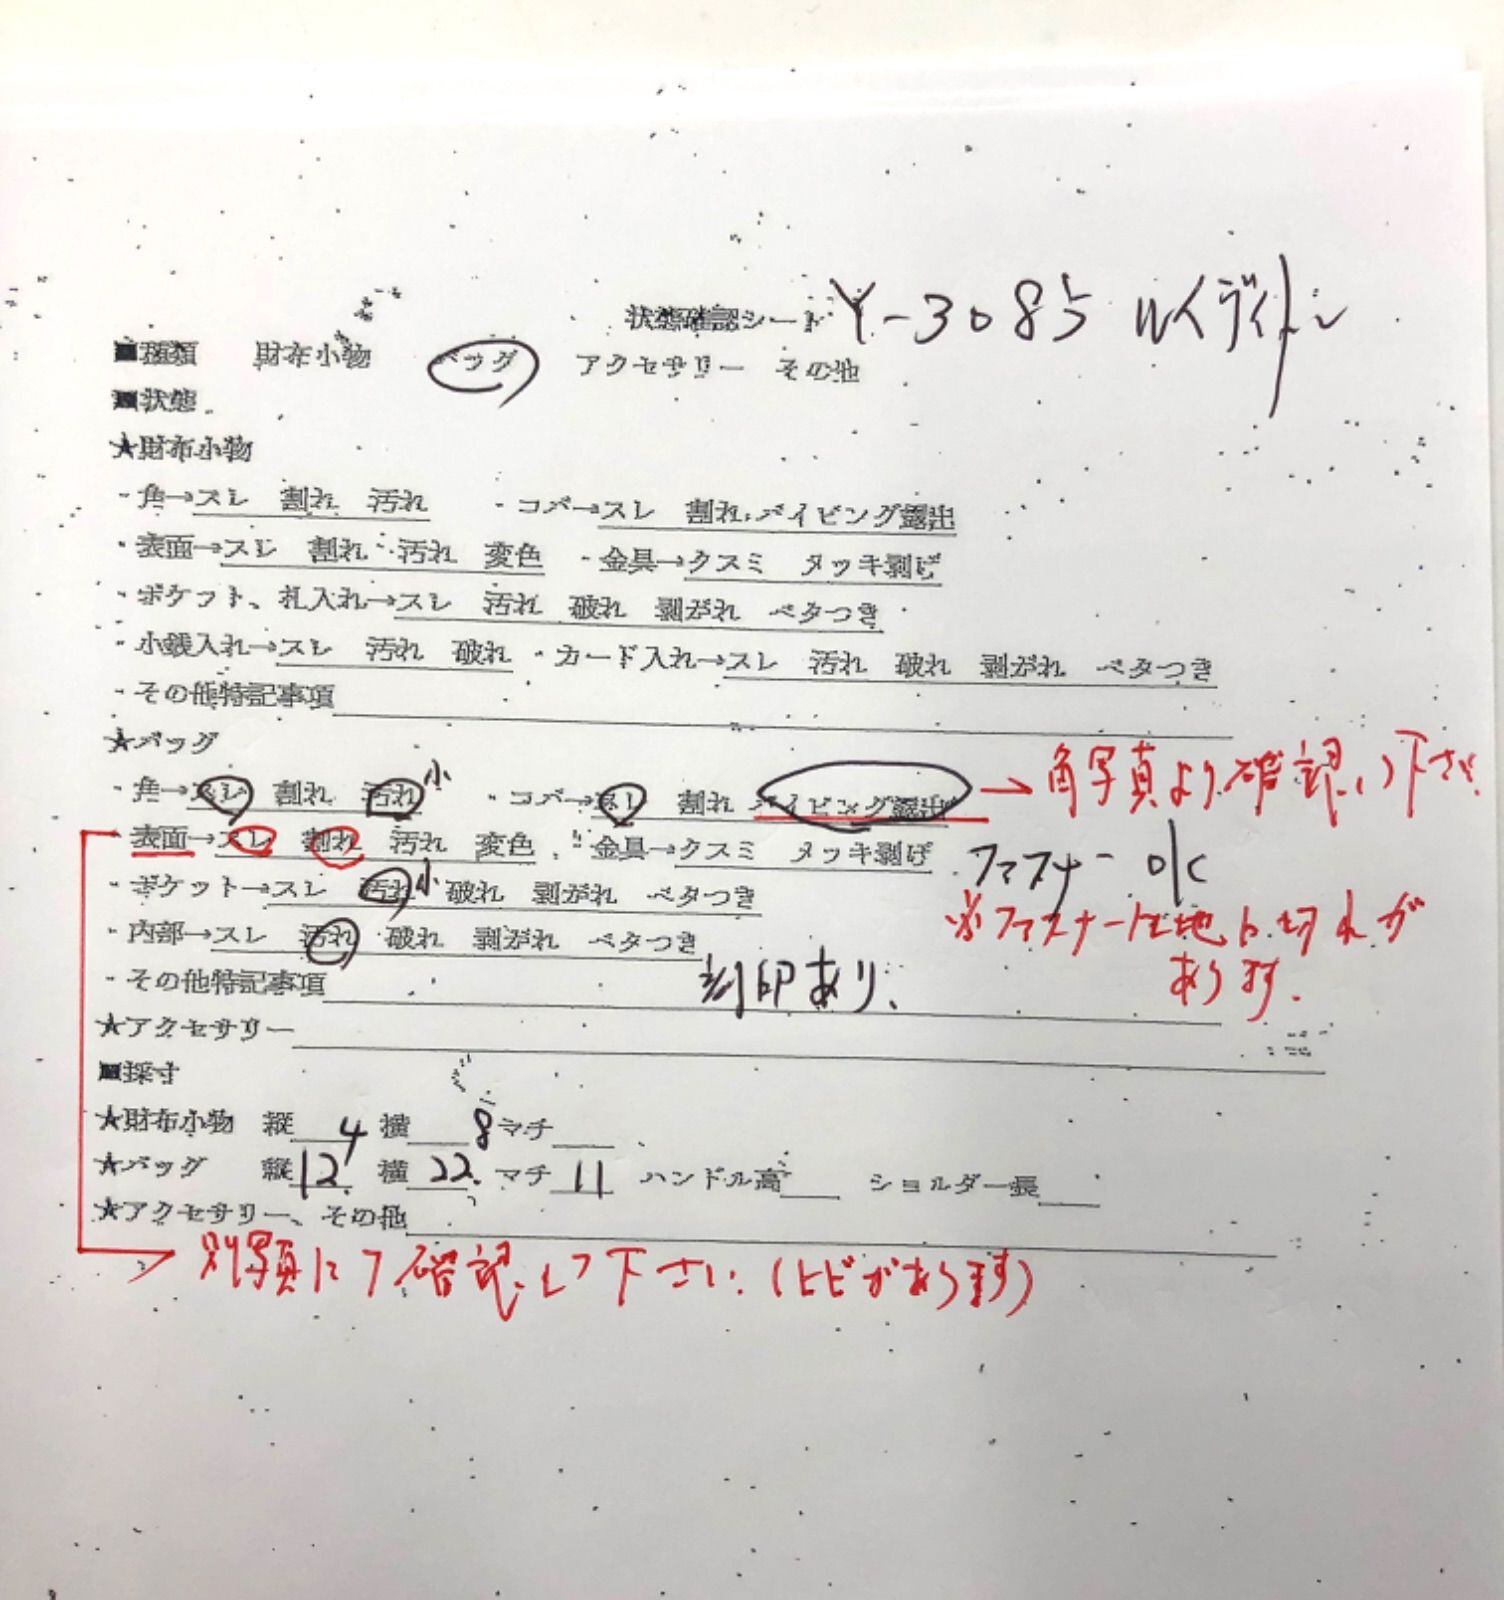 状態確認シート Y-3085 ルイヴィトン
■種類 財布小物 バッグ アクセサリー その他
■状態
★財布小物
・角→スレ 割れ 汚れ ・コバ→スレ 割れ パイピング露出
・表面→スレ 割れ 汚れ 変色 ・金具→クスミ メッキ剥げ
・ポケット、札入れ→スレ 汚れ 破れ 剥がれ ベタつき
・小銭入れ→スレ 汚れ 破れ ・カード入れ→スレ 汚れ 破れ 剥がれ ベタつき
・その他特記事項
★バッグ
・角→スレ 割れ 汚れ 小 ・コバ→スレ 割れ パイピング露出 → 角写真より確認して下さい
・表面→スレ 割れ 汚れ 変色 ・金具→クスミ メッキ剥げ ファスナー OK
・ポケット→スレ 汚れ 小 破れ 剥がれ ベタつき ※ファスナー生地に切れが
・内部→スレ 汚れ 破れ 剥がれ ベタつき あります.
・その他特記事項 刻印あり.
★アクセサリー
■採寸
★財布小物 縦 4 横 8 マチ
★バッグ 縦 12. 横 22. マチ 11 ハンドル高 ショルダー長
★アクセサリー、その他
→ 別写真にて確認して下さい.(ヒビがあります)